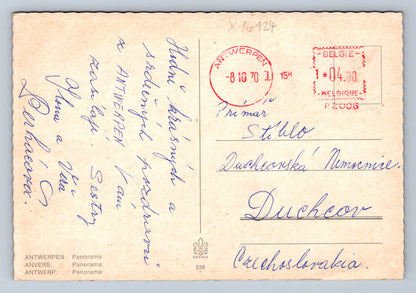 X 16124
ANTWERPEN
-8 10 70
15H
BELGIE
*04.00
BELGIQUE
P 2006
Hodně krásných a
srdečných pozdravů
z ANTWERPEN Vám
zasílají Sestry
Věra a
Primář
Stehlo
Duchcovská Nemocnice
Duchcov
Czechoslovakia.
ANTWERPEN: Panorama
ANVERS: Panorama
ANTWERP: Panorama
338